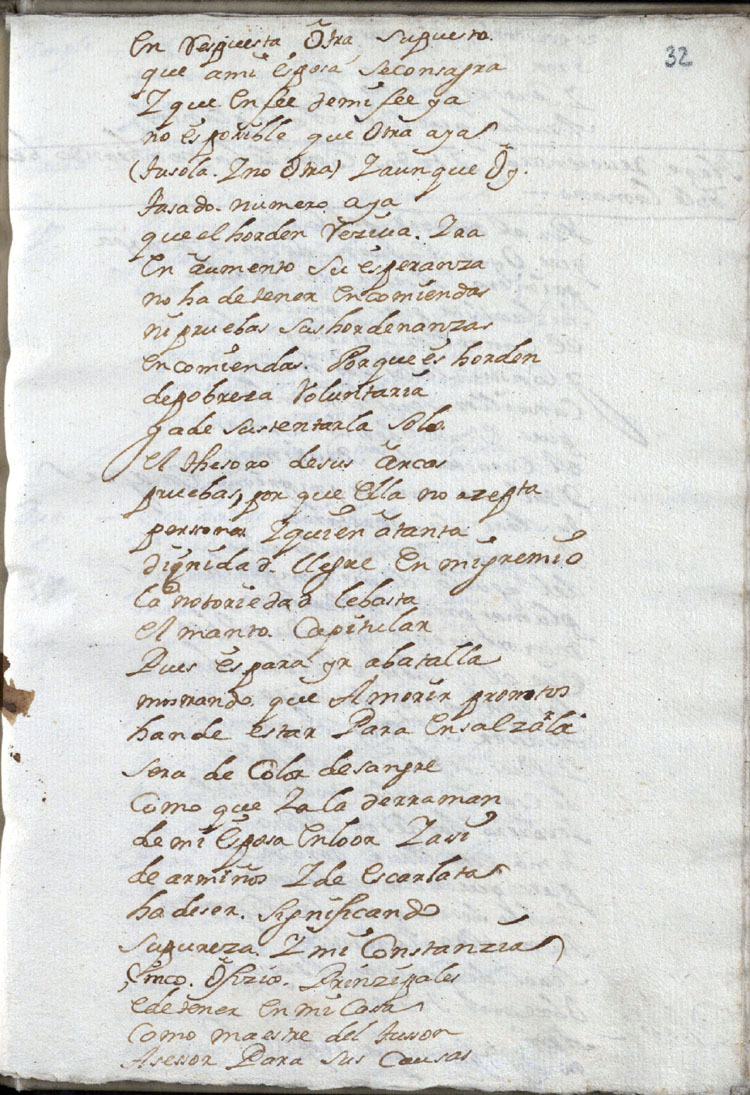 32
En Respuesta Otra supuesto.
que ami esposa seconsagra
Y que en fee demi fee ya
no es posible que otra aya
(tusola. Y no Otra) Y aunque Oy.
tasado. numero aya
que el horden Reziua. Yra
En aumento su esperanza
no ha detener Encomiendas
ni pruebas sus hordenanzas
encomiendas. Porque es horden
depobreza Voluntaria
ya de sustentarla solo
el thesoro desus arcas
pruebas, por que Ella no azepta
persona Y quien atanta
dignidad. llegre. En mi premio
la notoriedad lebasta
el manto. Capitular
Pues es para yr abatalla
mostrando que A morir promptos
hande estar Para Ensalzarla
sera de Color desangre
Como que Ya la derraman
de mi Esposa Enloor Y asi
de armiños Y de Escarlata
hadeser. significando
supureza. Y mi Constanzia
Zinco. Ofizio. Prinzipales
edetener En mi Casa
Como maestre del tuson
Asessor Para sus Causas